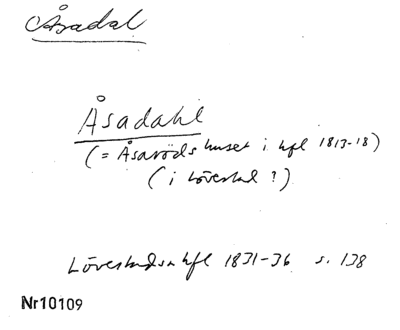 Åsadal
Åsadahl
(= Åsaröds huset i hfl 1813-18)
(i Lövestad ?)
Lövestads hfl 1831-36 s. 138
Nr10109